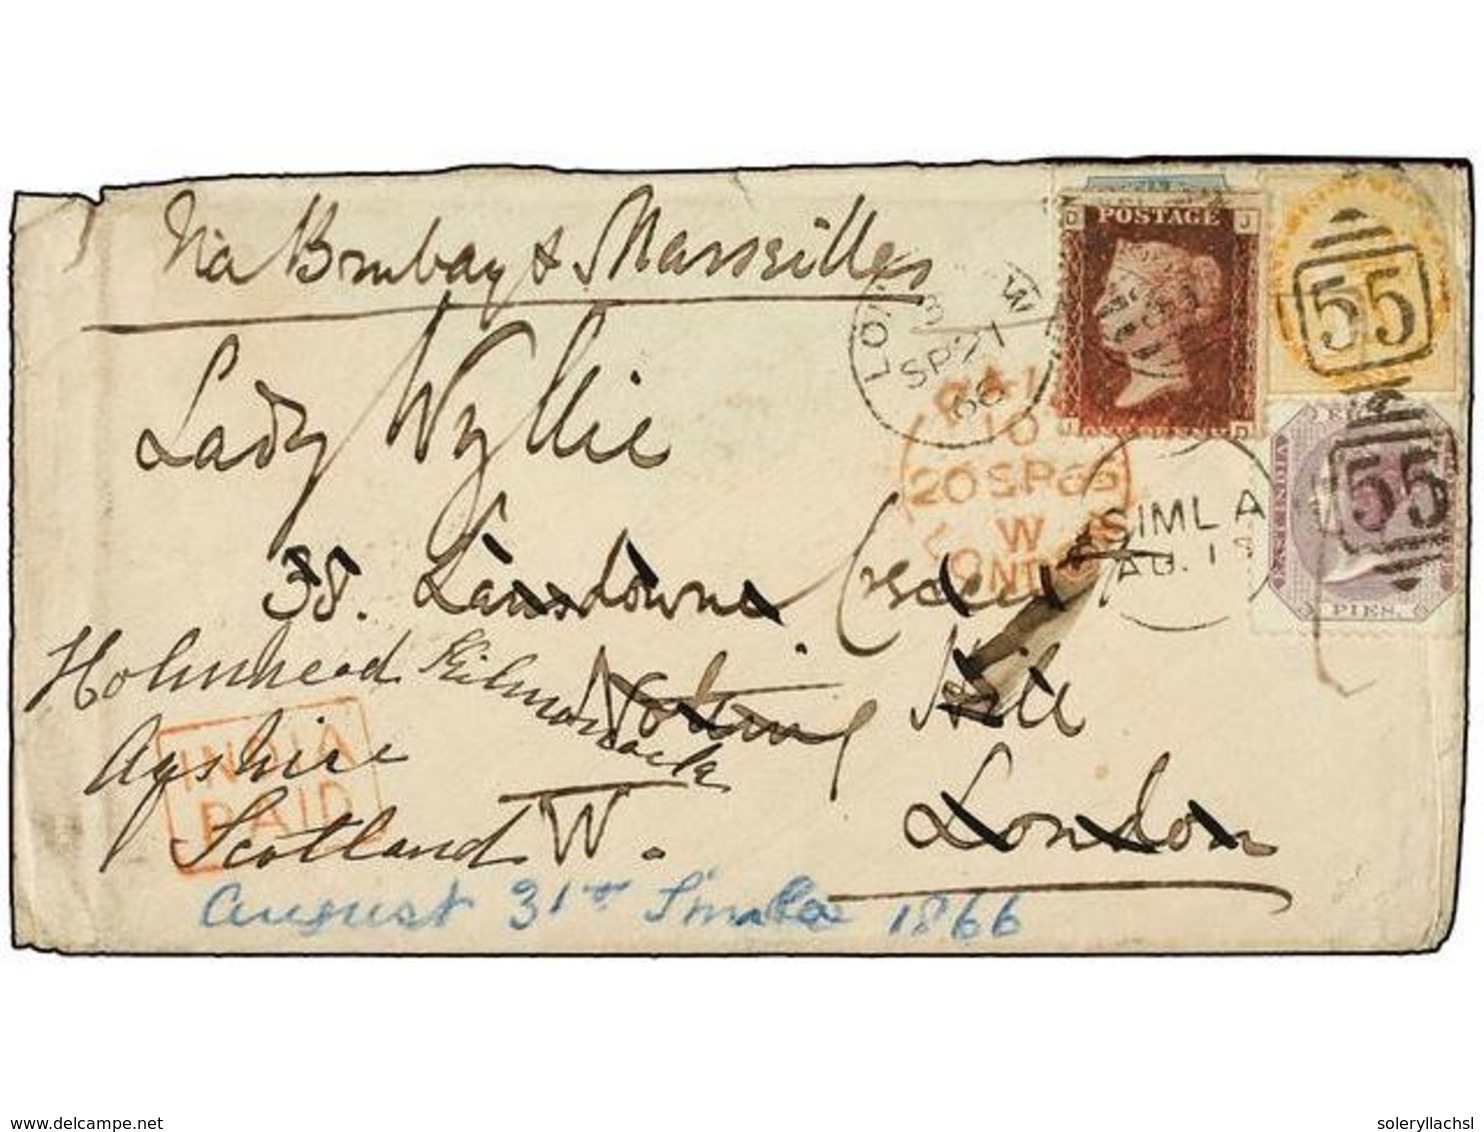 Via Bombay & Marseilles
Lady Wyllie
38. Lansdowne Crescent
Notting Hill
W.
London
Holmhead Kilmarnock
Ayrshire
Scotland
August 31st Simla 1866
INDIA
PAID
LON W
3
SP 21
66
PAID
10
20 SP 66
W
LONDON
SIMLA
AU. 1
D POSTAGE J
J D
55
55
EAST INDIA
PIES.
www.delcampe.net
soleryllachsl